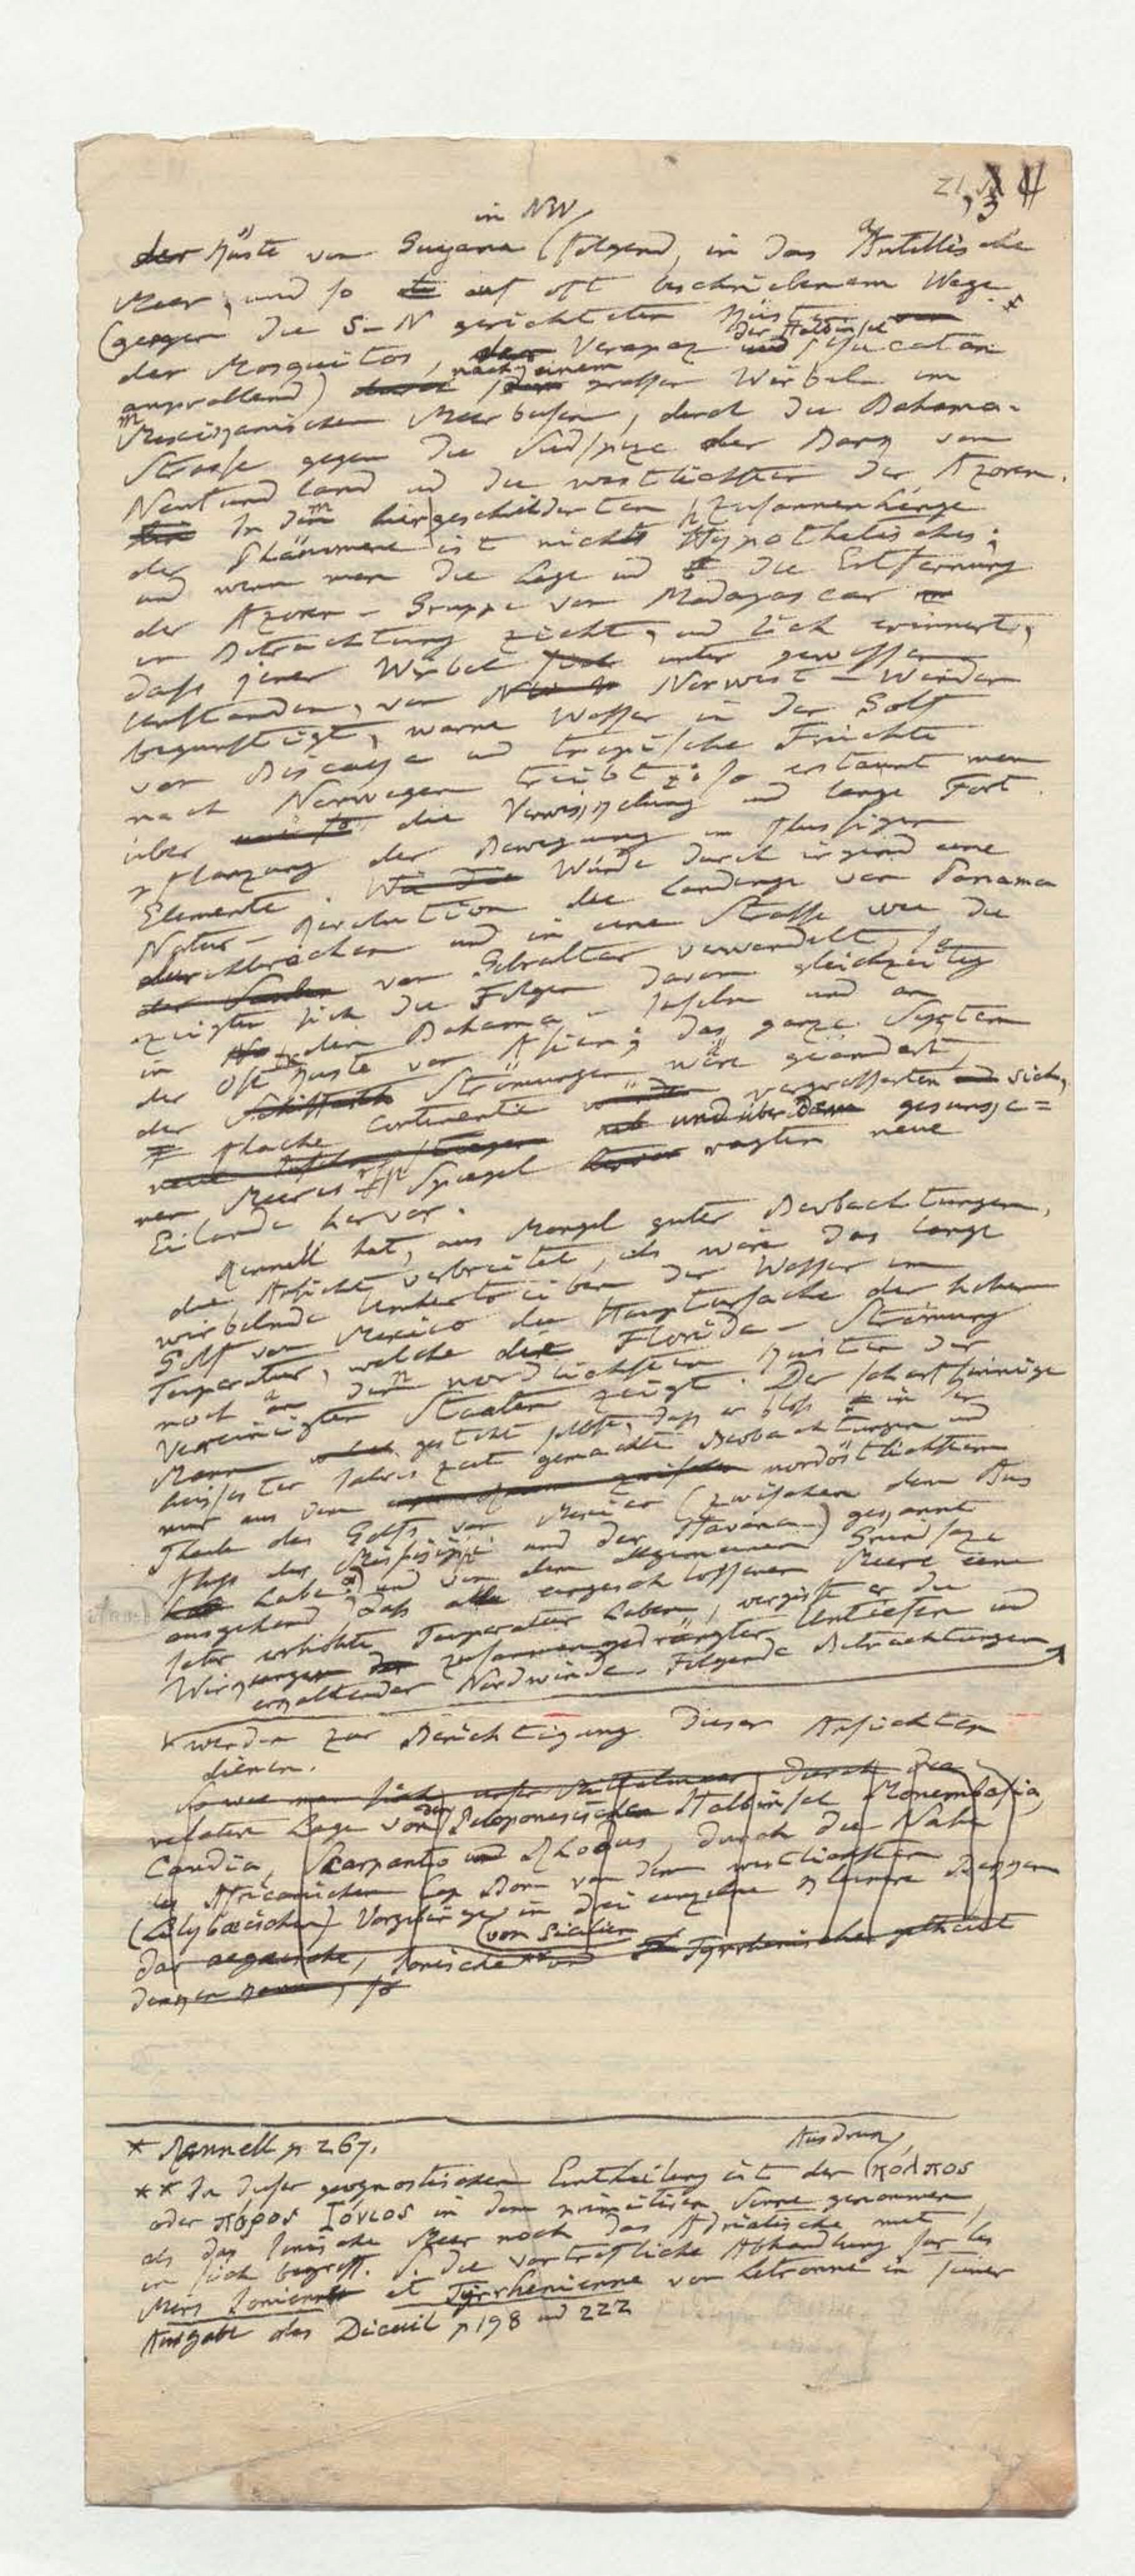 in NW
der Küste von Guyana (folgend, in das Antillische
Meer, und so auf oft beschriebenem Wege
(gegen die S-N gerichteten Küsten von
der Halbinsel
der Mosquitos, der Verapaz und Yucatan
nach einem
anprallend) durch grossen Wirbeln im
Mexicanischen Meerbusen, durch die Bahama-
Strasse gegen die Südspize der Bank von
Neufundland und die westlichsten der Azoren.
In dem hier geschilderten Zusammenhange
der Phänomene ist nichts Hypothetisches;
und wenn man die Lage und die Entfernung
der Azoren-Gruppe von Madagascar
in Betrachtung zieht, und sich erinnert,
dass jener Wirbel unter gewissen
Umständen, von Norwest-Winden
begünstigt, warme Wasser in den Golf
von Biscaya und tropische Früchte
nach Norwegen treibt; so erstaunt man
über die Verkisspelung und lange Fort
pflanzung der Bewegung im flüssigen
Elemente. Würde durch irgend eine
Natur-Revolution die Landenge von Panama
durchbrochen und in eine Strasse wie die
von Gibraltar verwandelt, so
zeigten sich die Folgen davon gleichzeitig
in den Bahama-Inseln und an
der Ost Küste von Asien; das ganze System
der Strömungen wäre geändert,
flache Continente vergrösserten sich,
und über dem gesunke=
nen Meeres Spiegel ragten neue
Eilande hervor.
Rennell hat, aus Mangel guter Beobachtungen,
die Ansicht verbreitet, als wäre das lange
wirbelnde Umhertreiben der Wasser im
Golf von Mexico die Hauptursache der hohen
Temperatur, welche die Florida-Strömung
noch an den nordlichsten Küsten der
Vereinigten Staaten zeigt. Der scharfsinnige
Mann gesteht selbst, dass er bloss in der
heissester Jahreszeit gemachte Beobachtungen und
nur aus dem nordöstlichsten
Theile des Golfs von Mexico (zwischen dem Aus
fluss des Missisippi und der Havana) gekannt
habe*) und von dem allgemeinen Grundsaze
ausgehend dass alle eingeschlossenen Meere eine
sehr erhöhte Temperatur haben, vergisst er die
Wirkungen zusammengedrängter Untiefen und
erkaltender Nordwinde. Folgende Betrachtungen
werden zur Berichtigung dieser Ansichten
dienen.
So wie man sich unser Mittelmeer, durch die
relative Lage von der Peloponesischen Halbinsel Monembasia,
Candia, Skarpanto und Rhodus, durch die Nähe
des Africanischen Cap Bon von dem westlichsten
(Lilybæischen) Vorgebirge in drei einzelne kleinere Becken
(von Sicilien
das aegaeische, Ionische** und Tyrrhenische getheilt
denken kann, so
* Rennell p 267.
Ausdruk
** In dieser geognostischen Eintheilung ist der κολπος
oder πόρος Ιόνιος in dem primitiven Sinne genommen,
als das Ionische Meer noch das Adriatische mit
in sich begriff. S. die vortrefliche Abhandlung sur les
Mers Ionienne et Tyrrhenienne von Letronne in seiner
Ausgabe des Dicuil p 198 und 222